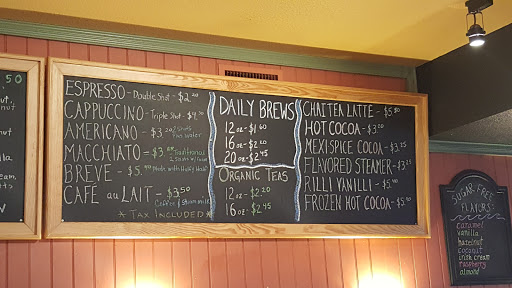 50
ESPRESSO - Double Shot - $2.20
CAPPUCCINO - Triple Shot - $4.
AMERICANO - $3.20
MACCHIATO = $3. Traditional
BREVE - $5. Made with Half & Half
CAFE au LAIT - $3.50
Coffee & Steam milk
* TAX INCLUDED *
DAILY BREWS
12 oz - $1.60
16 oz - $2.
20 oz - $2.45
ORGANIC TEAS
12 oz - $2.20
16 oz - $2.45
CHAI TEA LATTE - $5.
HOT COCOA - $3.20
MEXI SPICE COCOA - $3.
FLAVORED STEAMER - $3.
RILLI VANILLI - $5.
FROZEN HOT COCOA - $5.
SUGAR FREE
FLAVORS:
caramel
vanilla
hazelnut
coconut
irish cream
raspberry
almond